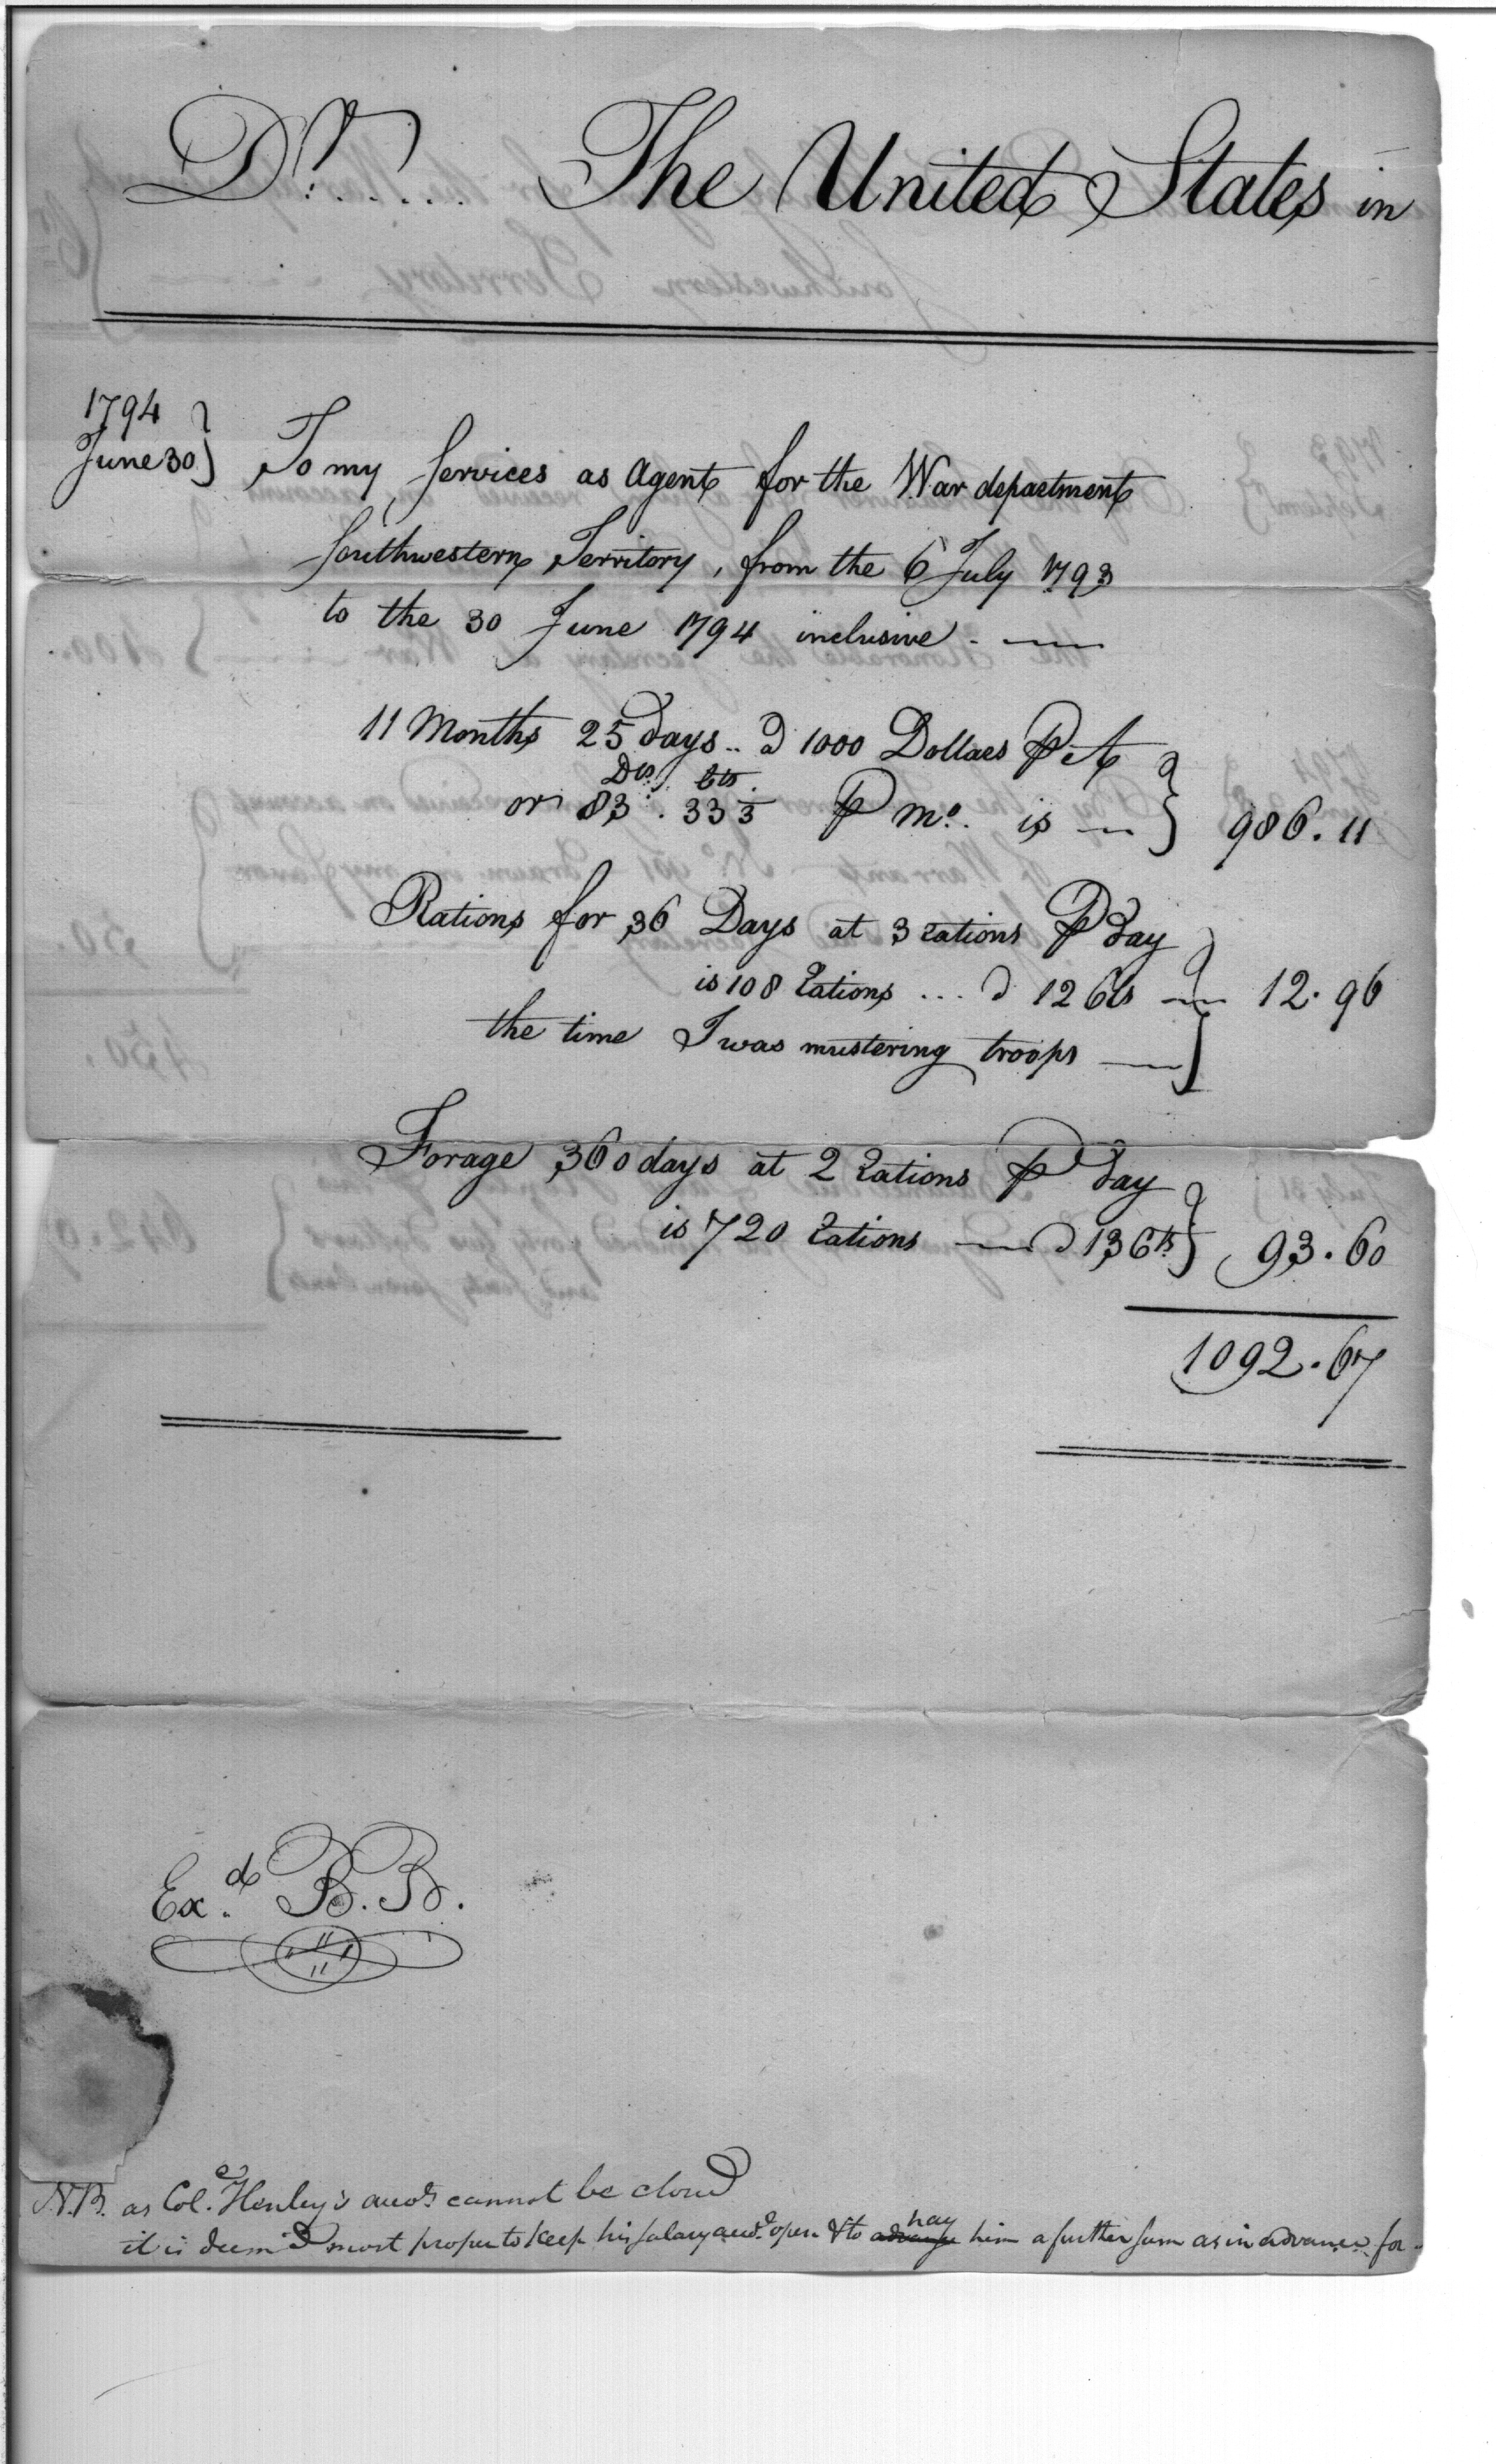 Dr..... The United States in
1794
June 30 } To my Services as Agent for the War department
Southwestern Territory, from the 6 July 1793
to the 30 June 1794 inclusive -
11 Months 25 days .. @ 1000 Dollars ⅌ A
Drs. Cts.
or 83. 33⅓ ⅌ Mo. is } 986.11
Rations for 36 Days at 3 rations ⅌ day
is 108 rations ... @ 12 Cts } 12.96
the time I was mustering troops
Forage 360 days at 2 rations ⅌ day
is 720 rations @ 13 Cts } 93.60
1092.67
Exd. B.B.
N.B. as Col. Henley's accots cannot be closed
it is deem'd most proper to keep his salary accot open & to advance pay him a further sum as in advance for